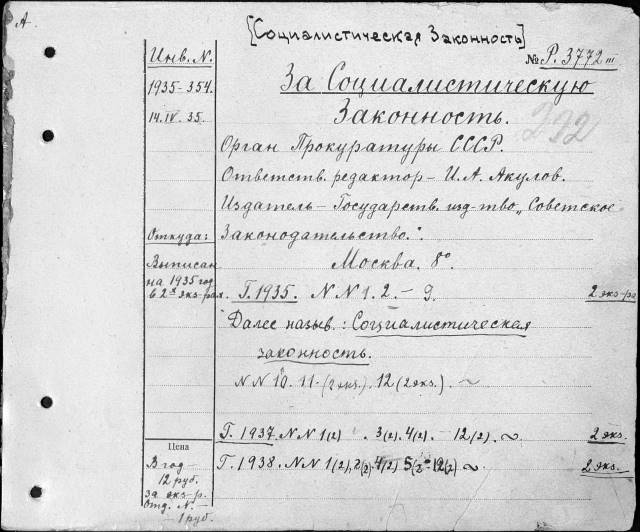 А.
[Социалистическая Законность]
№ Р. 3772 III
Инв. N.
1935-354.
14.IV.35.
За Социалистическую
Законность.
292
Орган Прокуратуры СССР.
Ответств. редактор – И. А. Акулов.
Издатель – Государств. изд-тво „Советское
Законодательство“.
Москва. 8°
Откуда:
Выписан
на 1935 год
в 2х экз-рах.
Г. 1935. N N 1. 2. – 9. 2 экз-ра
Далее назыв.: Социалистическая
законность.
N N 10. 11-(2 экз.). 12 (2 экз.) ~
Г. 1937. N N 1(2) . 3(2). 4(2). – 12(2). ~ 2 экз.
Г. 1938. N N 1(2), 2(2). 4(2) 5(2)-12(2) ~ 2 экз.
Цена
В год –
12 руб.
за экз-р.
Отд. N. –
– 1 руб.